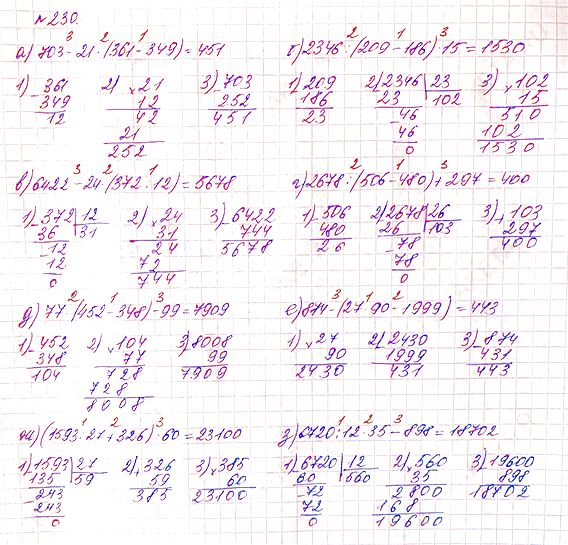 № 230.
3 2 1
а) 703 - 21 · (361 - 349) = 451
1) - 361 2) × 21 3) - 703
349 12 252
12 42 451
21
252
2 1 3
б) 2346 : (209 - 186) · 15 = 1530
1) - 209 2) - 2346 | 23 3) × 102
186 23 102 15
23 - 46 510
46 102
0 1530
3 2 1
в) 6422 - 24 · (372 : 12) = 5678
1) - 372 | 12 2) × 24 3) - 6422
36 31 31 744
- 12 24 5678
12 72
0 744
2 1 3
г) 2678 : (506 - 480) + 297 = 400
1) - 506 2) - 2678 | 26 3) + 103
480 26 103 297
26 - 78 400
78
0
2 1 3
д) 77 · (452 - 348) - 99 = 7909
1) - 452 2) × 104 3) - 8008
348 77 99
104 728 7909
728
8008
3 1 2
е) 874 - (27 · 90 - 1999) = 443
1) × 27 2) - 2430 3) - 874
90 1999 431
2430 431 443
1 2 3
ж) (1593 : 27 + 326) · 60 = 23100
1) - 1593 | 27 2) + 326 3) × 385
135 59 59 60
- 243 385 23100
243
0
1 2 3
з) 6720 : 12 · 35 - 898 = 18702
1) - 6720 | 12 2) × 560 3) - 19600
60 560 35 898
- 72 2800 18702
72 168
0 19600